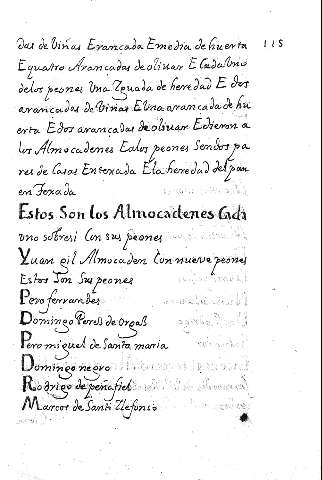 das de Viñas Erançada Emedia de huerta 115
Equatro Arançadas de oliuar E Cada Uno
delos peones Una Yguada de heredad E dos
arançadas de Viñas E Una arançada de hu
erta E dos arançadas de oliuar E dieron a
los Almocadenes Ealos peones Sendos pa
res de Casas En texada E la heredad del pan
en Texada
Estos Son los Almocadenes Cada
uno sobresi Con sus peones
Yuan gil Almocaden Con nueve peones
Estos Son Sus peones
Pero ferrandes
Domingo Peres de Orgas
Pero miguel de Santa maria
Domingo negro
Rodrigo de peñafiel
Marcos de Santi Ylefonso